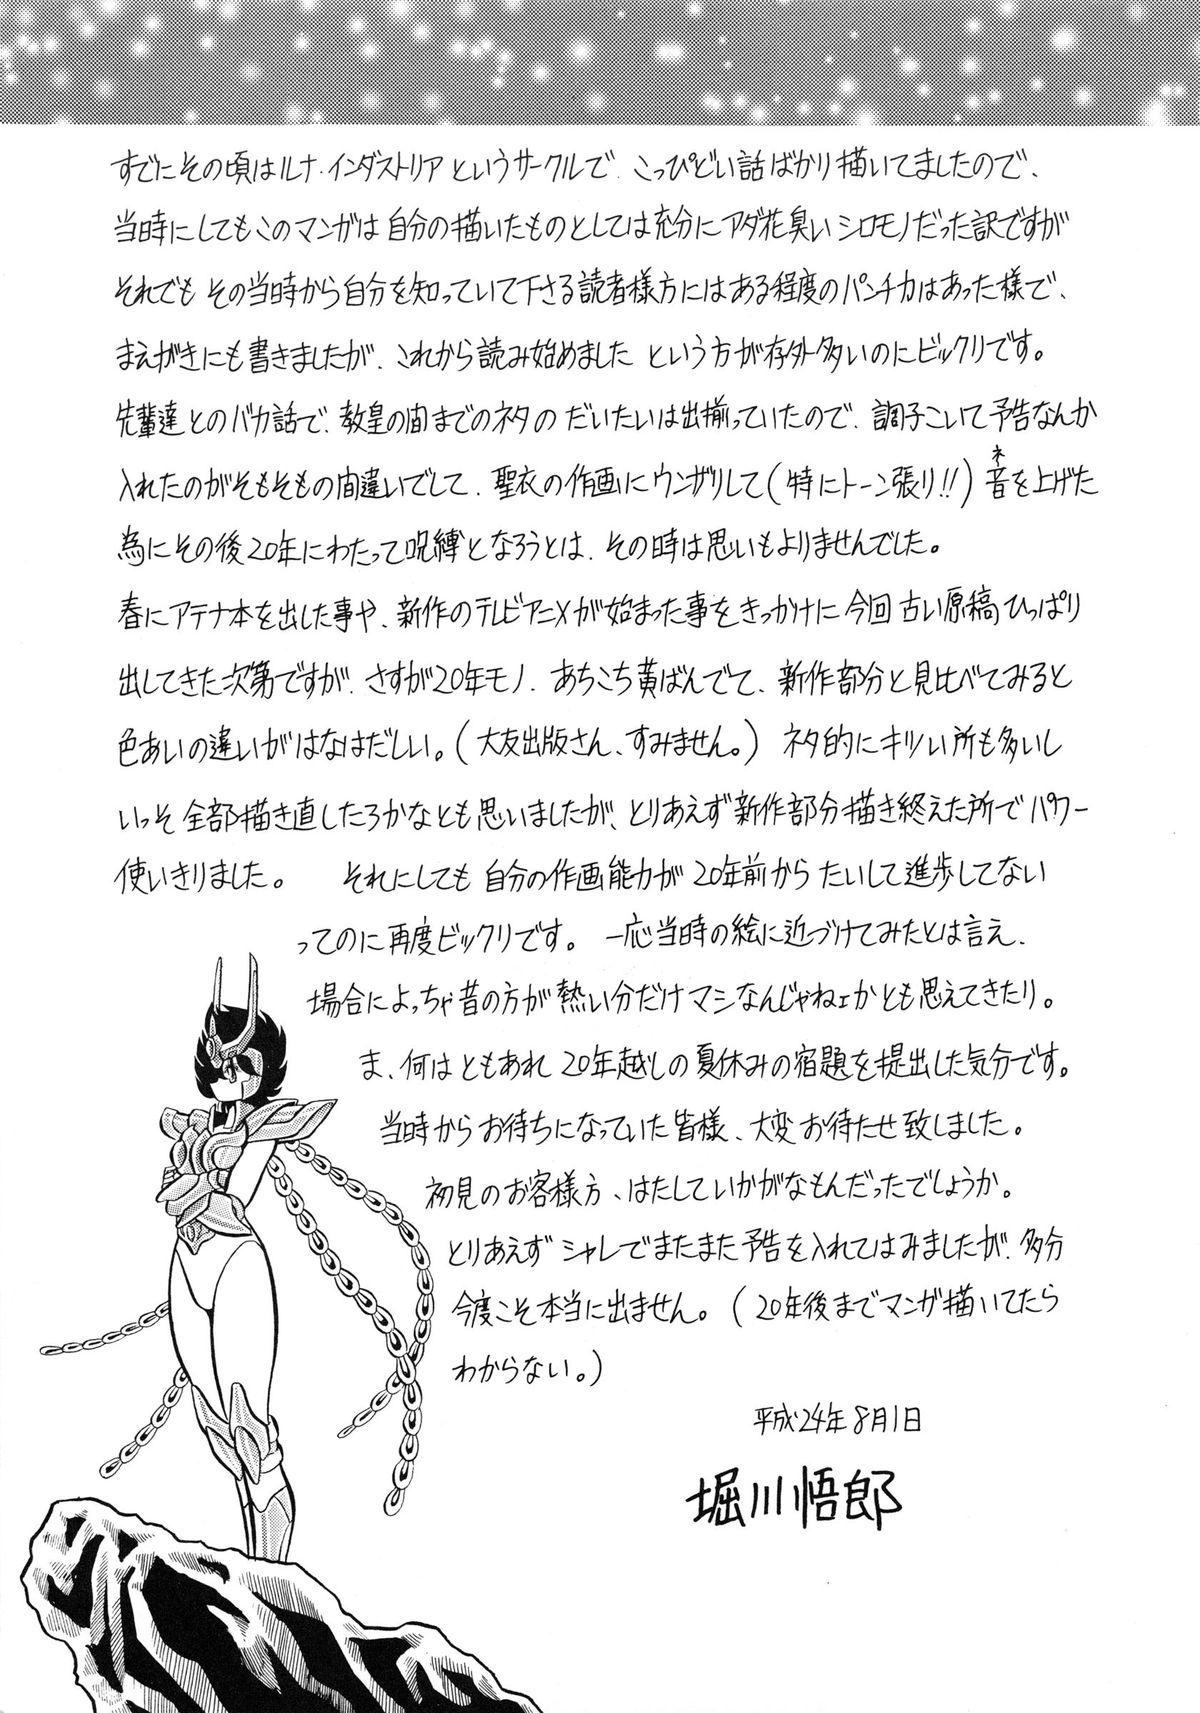 すでにその頃はルナ・インダストリアというサークルで、こっぴどい話ばかり描いてましたので、
当時にしてもこのマンガは自分の描いたものとしては充分にアダ花臭いシロモノだった訳ですが
それでもその当時から自分を知っていて下さる読者様方にはある程度のパンチ力はあった様で、
まえがきにも書きましたが、これから読み始めましたという方が存外多いのにビックリです。
先輩達とのバカ話で、教皇の間までのネタのだいたいは出揃っていたので、調子こいて予告なんか
入れたのがそもそもの間違いでして、聖衣の作画にウンザリして(特にトーン張り!!)音を上げた
ネ
為にその後20年にわたって呪縛となろうとは、その時は思いもよりませんでした。
春にアテナ本を出した事や、新作のテレビアニメが始まった事をきっかけに今回古い原稿ひっぱり
出してきた次第ですが、さすが20年モノ、あちこち黄ばんでて、新作部分と見比べてみると
色あいの違いがはなはだしい。(大友出版さん、すみません。)ネタ的にキツい所も多いし
いっそ全部描き直したろかなとも思いましたが、とりあえず新作部分描き終えた所でパワー
使いきりました。　それにしても自分の作画能力が20年前からたいして進歩してない
ってのに再度ビックリです。一応当時の絵に近づけてみたとは言え、
場合によっちゃ昔の方が熱い分だけマシなんじゃねェかとも思えてきたり。
ま、何はともあれ20年越しの夏休みの宿題を提出した気分です。
当時からお待ちになっていた皆様、大変お待たせ致しました。
初見のお客様方、はたしていかがなもんだったでしょうか。
とりあえずシャレでまたまた予告を入れてはみましたが、多分
今度こそ本当に出ません。(20年後までマンガ描いてたら
わからない。)
平成24年8月1日
堀川悟郎